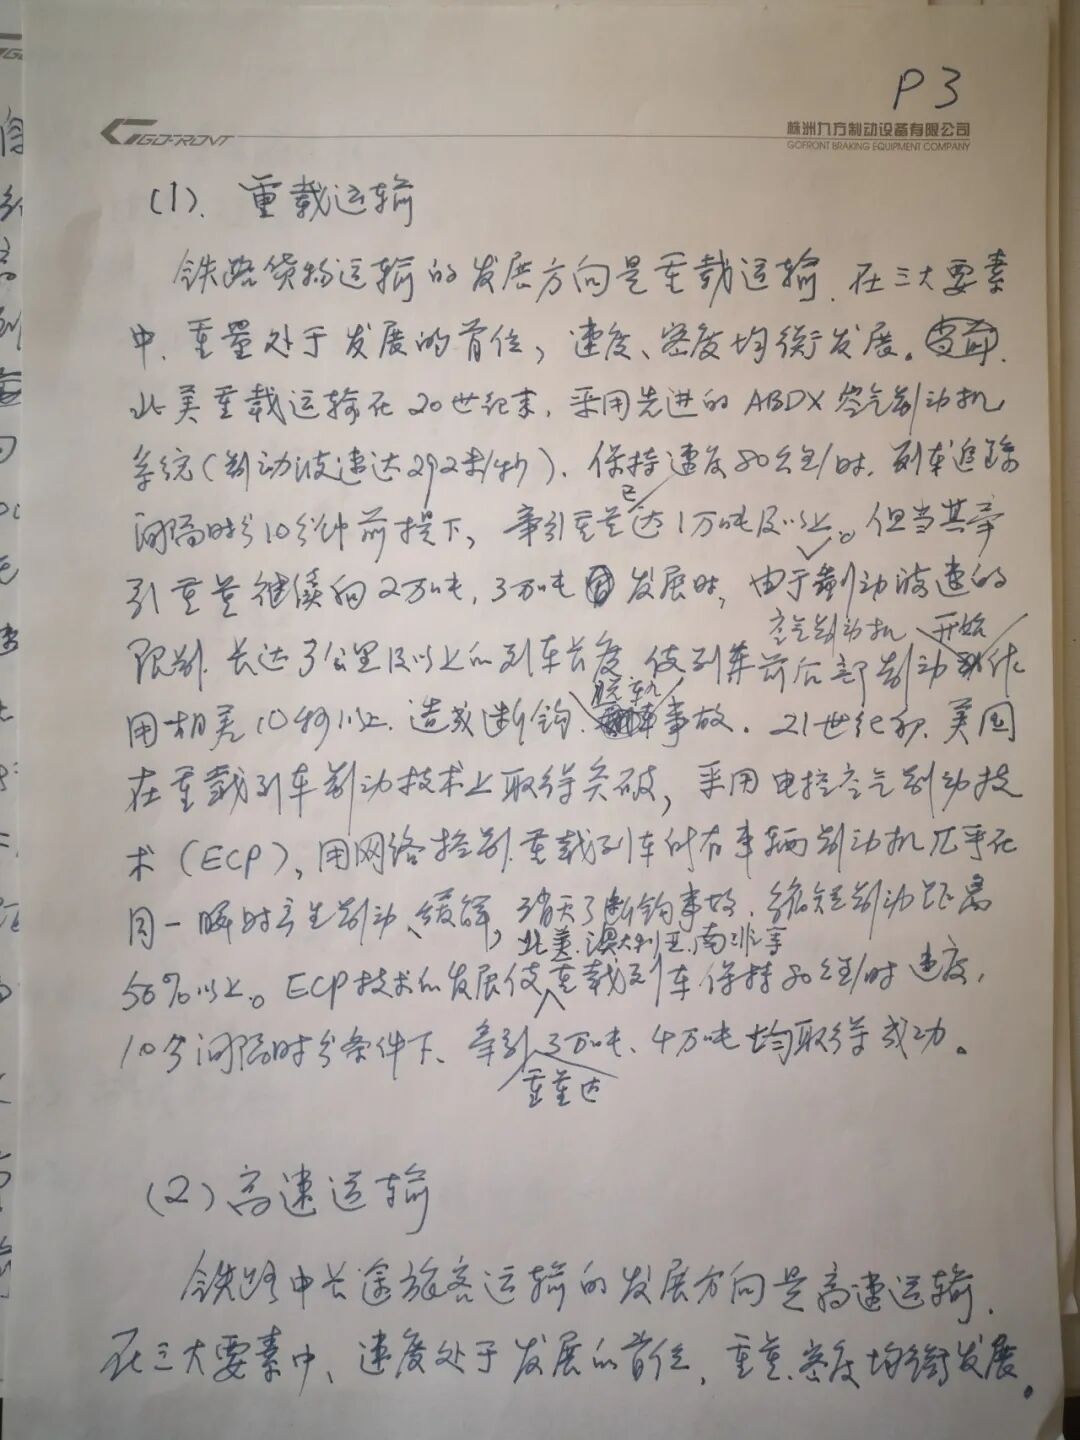 P3
GOFRONT
株洲九方制动设备有限公司
GOFRONT BRAKING EQUIPMENT COMPANY
(1). 重载运输
铁路货物运输的发展方向是重载运输. 在三大要素
中. 重量处于发展的首位, 速度、密度均衡发展。当前.
北美重载运输在20世纪末. 采用先进的ABDX空气制动机
系统(制动波速达292米/秒). 保持速度80公里/时. 列车追踪
间隔时分10分钟前提下, 牵引重量已达1万吨及以上。但当其牵
引重量继续向2万吨, 3万吨发展时, 由于制动波速的
空气制动机 开始
限制. 长达3公里及以上的列车长度 使列车前后部制动作
脱轨
用相差10秒以上. 造成断钩、事故. 21世纪初. 美国
在重载列车制动技术上取得突破, 采用电控空气制动技
术(ECP), 用网络控制. 重载列车所有车辆制动机几乎在
同一瞬时产生制动、缓解, 消灭了断钩事故. 缩短制动距离
北美.澳大利亚.南非等
50%以上。ECP技术的发展使重载列车保持80公里/时速度,
10分间隔时分条件下、牵引3万吨、4万吨均取得成功。
重量达
(2) 高速运输
铁路中长途旅客运输的发展方向是高速运输.
在三大要素中、速度处于发展的首位, 重量.密度均衡发展。